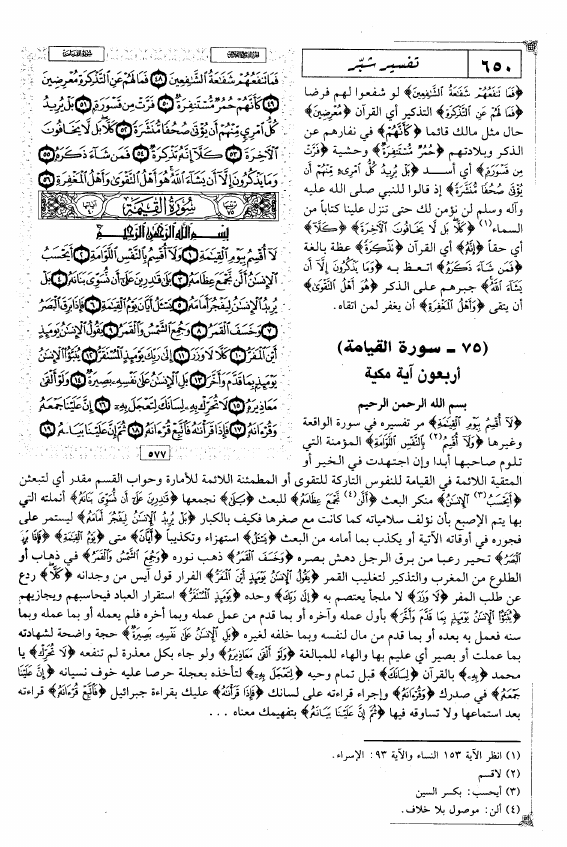 ٦٥٠
تفسير شبّر
﴿فَمَا تَنفَعُهُمْ شَفَاعَةُ الشَّافِعِينَ﴾ لو شفعوا لهم فرضا
﴿فَمَا لَهُمْ عَنِ التَّذْكِرَةِ﴾ التذكير أي القرآن ﴿مُعْرِضِينَ﴾
حال مثل مالك قائما ﴿كَأَنَّهُمْ﴾ في نفارهم عن
الذكر وبلادتهم ﴿حُمُرٌ مُّسْتَنفِرَةٌ﴾ وحشية ﴿فَرَّتْ
مِن قَسْوَرَةٍ﴾ أي أسد ﴿بَلْ يُرِيدُ كُلُّ امْرِئٍ مِّنْهُمْ أَن
يُؤْتَىٰ صُحُفًا مُّنَشَّرَةً﴾ إذ قالوا للنبي صلى الله عليه
وآله وسلم لن نؤمن لك حتى تنزل علينا كتاباً من
السماء(١) ﴿كَلَّا بَل لَّا يَخَافُونَ الْآخِرَةَ﴾ ﴿كَلَّا﴾
أي حقاً ﴿إِنَّهُ﴾ أي القرآن ﴿تَذْكِرَةٌ﴾ عظة بالغة
﴿فَمَن شَاءَ ذَكَرَهُ﴾ اتعظ به ﴿وَمَا يَذْكُرُونَ إِلَّا أَن
يَشَاءَ اللَّهُ﴾ جبرهم على الذكر ﴿هُوَ أَهْلُ التَّقْوَىٰ﴾
أن يتقى ﴿وَأَهْلُ الْمَغْفِرَةِ﴾ أن يغفر لمن اتقاه.
(٧٥ ـ سورة القيامة)
أربعون آية مكية
بسم الله الرحمن الرحيم
﴿لَا أُقْسِمُ بِيَوْمِ الْقِيَامَةِ﴾ مر تفسيره في سورة الواقعة
وغيرها ﴿وَلَا أُقْسِمُ(٢) بِالنَّفْسِ اللَّوَّامَةِ﴾ المؤمنة التي
تلوم صاحبها أبدا وإن اجتهدت في الخير أو
فَمَا تَنفَعُهُمْ شَفَاعَةُ الشَّافِعِينَ ٤٨ فَمَا لَهُمْ عَنِ التَّذْكِرَةِ مُعْرِضِينَ
٤٩ كَأَنَّهُمْ حُمُرٌ مُّسْتَنفِرَةٌ ٥٠ فَرَّتْ مِن قَسْوَرَةٍ ٥١ بَلْ يُرِيدُ
كُلُّ امْرِئٍ مِّنْهُمْ أَن يُؤْتَىٰ صُحُفًا مُّنَشَّرَةً ٥٢ كَلَّا بَل لَّا يَخَافُونَ
الْآخِرَةَ ٥٣ كَلَّا إِنَّهُ تَذْكِرَةٌ ٥٤ فَمَن شَاءَ ذَكَرَهُ ٥٥
وَمَا يَذْكُرُونَ إِلَّا أَن يَشَاءَ اللَّهُ هُوَ أَهْلُ التَّقْوَىٰ وَأَهْلُ الْمَغْفِرَةِ ٥٦
سُورَةُ الْقِيَامَةِ
بِسْمِ اللَّهِ الرَّحْمَٰنِ الرَّحِيمِ
لَا أُقْسِمُ بِيَوْمِ الْقِيَامَةِ ١ وَلَا أُقْسِمُ بِالنَّفْسِ اللَّوَّامَةِ ٢ أَيَحْسَبُ
الْإِنسَانُ أَلَّن نَّجْمَعَ عِظَامَهُ ٣ بَلَىٰ قَادِرِينَ عَلَىٰ أَن نُّسَوِّيَ بَنَانَهُ ٤ بَلْ
يُرِيدُ الْإِنسَانُ لِيَفْجُرَ أَمَامَهُ ٥ يَسْأَلُ أَيَّانَ يَوْمُ الْقِيَامَةِ ٦ فَإِذَا بَرِقَ الْبَصَرُ
٧ وَخَسَفَ الْقَمَرُ ٨ وَجُمِعَ الشَّمْسُ وَالْقَمَرُ ٩ يَقُولُ الْإِنسَانُ يَوْمَئِذٍ
أَيْنَ الْمَفَرُّ ١٠ كَلَّا لَا وَزَرَ ١١ إِلَىٰ رَبِّكَ يَوْمَئِذٍ الْمُسْتَقَرُّ ١٢ يُنَبَّأُ الْإِنسَانُ
يَوْمَئِذٍ بِمَا قَدَّمَ وَأَخَّرَ ١٣ بَلِ الْإِنسَانُ عَلَىٰ نَفْسِهِ بَصِيرَةٌ ١٤ وَلَوْ أَلْقَىٰ
مَعَاذِيرَهُ ١٥ لَا تُحَرِّكْ بِهِ لِسَانَكَ لِتَعْجَلَ بِهِ ١٦ إِنَّ عَلَيْنَا جَمْعَهُ
وَقُرْآنَهُ ١٧ فَإِذَا قَرَأْنَاهُ فَاتَّبِعْ قُرْآنَهُ ١٨ ثُمَّ إِنَّ عَلَيْنَا بَيَانَهُ ١٩
٥٧٧
المتقية اللائمة في القيامة للنفوس التاركة للتقوى أو المطمئنة اللائمة للأمارة وجواب القسم مقدر أي لتبعثن
﴿أَيَحْسَبُ(٣) الْإِنسَانُ﴾ منكر البعث ﴿أَلَّن(٤) نَّجْمَعَ عِظَامَهُ﴾ للبعث ﴿بَلَىٰ﴾ نجمعها ﴿قَادِرِينَ عَلَىٰ أَن نُّسَوِّيَ بَنَانَهُ﴾ أنملته التي
بها يتم الإصبع بأن نؤلف سلامياته كما كانت مع صغرها فكيف بالكبار ﴿بَلْ يُرِيدُ الْإِنسَانُ لِيَفْجُرَ أَمَامَهُ﴾ ليستمر على
فجوره في أوقاته الآتية أو يكذب بما أمامه من البعث ﴿يَسْأَلُ﴾ استهزاء وتكذيباً ﴿أَيَّانَ﴾ متى ﴿يَوْمُ الْقِيَامَةِ﴾ ﴿فَإِذَا بَرِقَ
الْبَصَرُ﴾ تحير رعبا من برق الرجل دهش بصره ﴿وَخَسَفَ الْقَمَرُ﴾ ذهب نوره ﴿وَجُمِعَ الشَّمْسُ وَالْقَمَرُ﴾ في ذهاب أو
الطلوع من المغرب والتذكير لتغليب القمر ﴿يَقُولُ الْإِنسَانُ يَوْمَئِذٍ أَيْنَ الْمَفَرُّ﴾ الفرار قول آيس من وجدانه ﴿كَلَّا﴾ ردع
عن طلب المفر ﴿لَا وَزَرَ﴾ لا ملجأ يعتصم به ﴿إِلَىٰ رَبِّكَ﴾ وحده ﴿يَوْمَئِذٍ الْمُسْتَقَرُّ﴾ استقرار العباد فيحاسبهم ويجازيهم
﴿يُنَبَّأُ الْإِنسَانُ يَوْمَئِذٍ بِمَا قَدَّمَ وَأَخَّرَ﴾ بأول عمله وآخره أو بما قدم من عمل عمله وبما أخره فلم يعمله أو بما عمله وبما
سنه فعمل به بعده أو بما قدم من مال لنفسه وبما خلفه لغيره ﴿بَلِ الْإِنسَانُ عَلَىٰ نَفْسِهِ بَصِيرَةٌ﴾ حجة واضحة لشهادته
بما عملت أو بصير أي عليم بها والهاء للمبالغة ﴿وَلَوْ أَلْقَىٰ مَعَاذِيرَهُ﴾ ولو جاء بكل معذرة لم تنفعه ﴿لَا تُحَرِّكْ﴾ يا
محمد ﴿بِهِ﴾ بالقرآن ﴿لِسَانَكَ﴾ قبل تمام وحيه ﴿لِتَعْجَلَ بِهِ﴾ لتأخذه بعجلة حرصا عليه خوف نسيانه ﴿إِنَّ عَلَيْنَا
جَمْعَهُ﴾ في صدرك ﴿وَقُرْآنَهُ﴾ وإجراء قراءته على لسانك ﴿فَإِذَا قَرَأْنَاهُ﴾ عليك بقراءة جبرائيل ﴿فَاتَّبِعْ قُرْآنَهُ﴾ قراءته
بعد استماعها ولا تساوقه فيها ﴿ثُمَّ إِنَّ عَلَيْنَا بَيَانَهُ﴾ بتفهيمك معناه ...
(١) انظر الآية ١٥٣ النساء والآية ٩٣: الإسراء.
(٢) لاقسم
(٣) أيحسب: بكسر السين
(٤) ألن: موصول بلا خلاف.